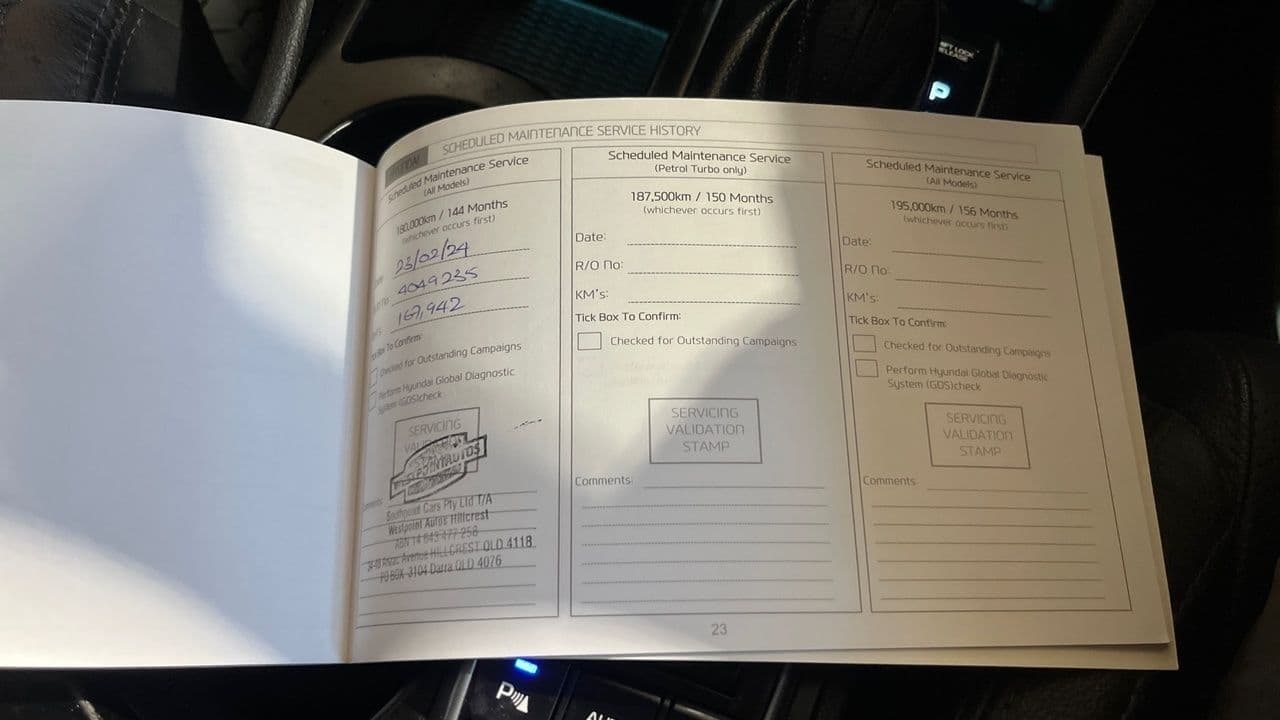 SCHEDULED MAINTENANCE SERVICE HISTORY
Scheduled Maintenance Service
(All Models)
180,000km / 144 Months
(whichever occurs first)
23/02/24
4049235
167,942
Box To Confirm:
Checked for Outstanding Campaigns
Perform Hyundai Global Diagnostic
System (GDS)check
SERVICING
WESTPOINTAUTOS
Southpoint Cars Pty Ltd T/A
Westpoint Autos Hillcrest
ABN 14 643 477 258
Avenue HILLCREST QLD 4118
PO BOX 3104 Darra QLD 4076
Scheduled Maintenance Service
(Petrol Turbo only)
187,500km / 150 Months
(whichever occurs first)
Date:
R/O No:
KM's:
Tick Box To Confirm:
Checked for Outstanding Campaigns
SERVICING
VALIDATION
STAMP
Comments:
Scheduled Maintenance Service
(All Models)
195,000km / 156 Months
(whichever occurs first)
Date:
R/O No:
KM's:
Tick Box To Confirm:
Checked for Outstanding Campaigns
Perform Hyundai Global Diagnostic
System (GDS)check
SERVICING
VALIDATION
STAMP
Comments:
23
LOCK
P
P